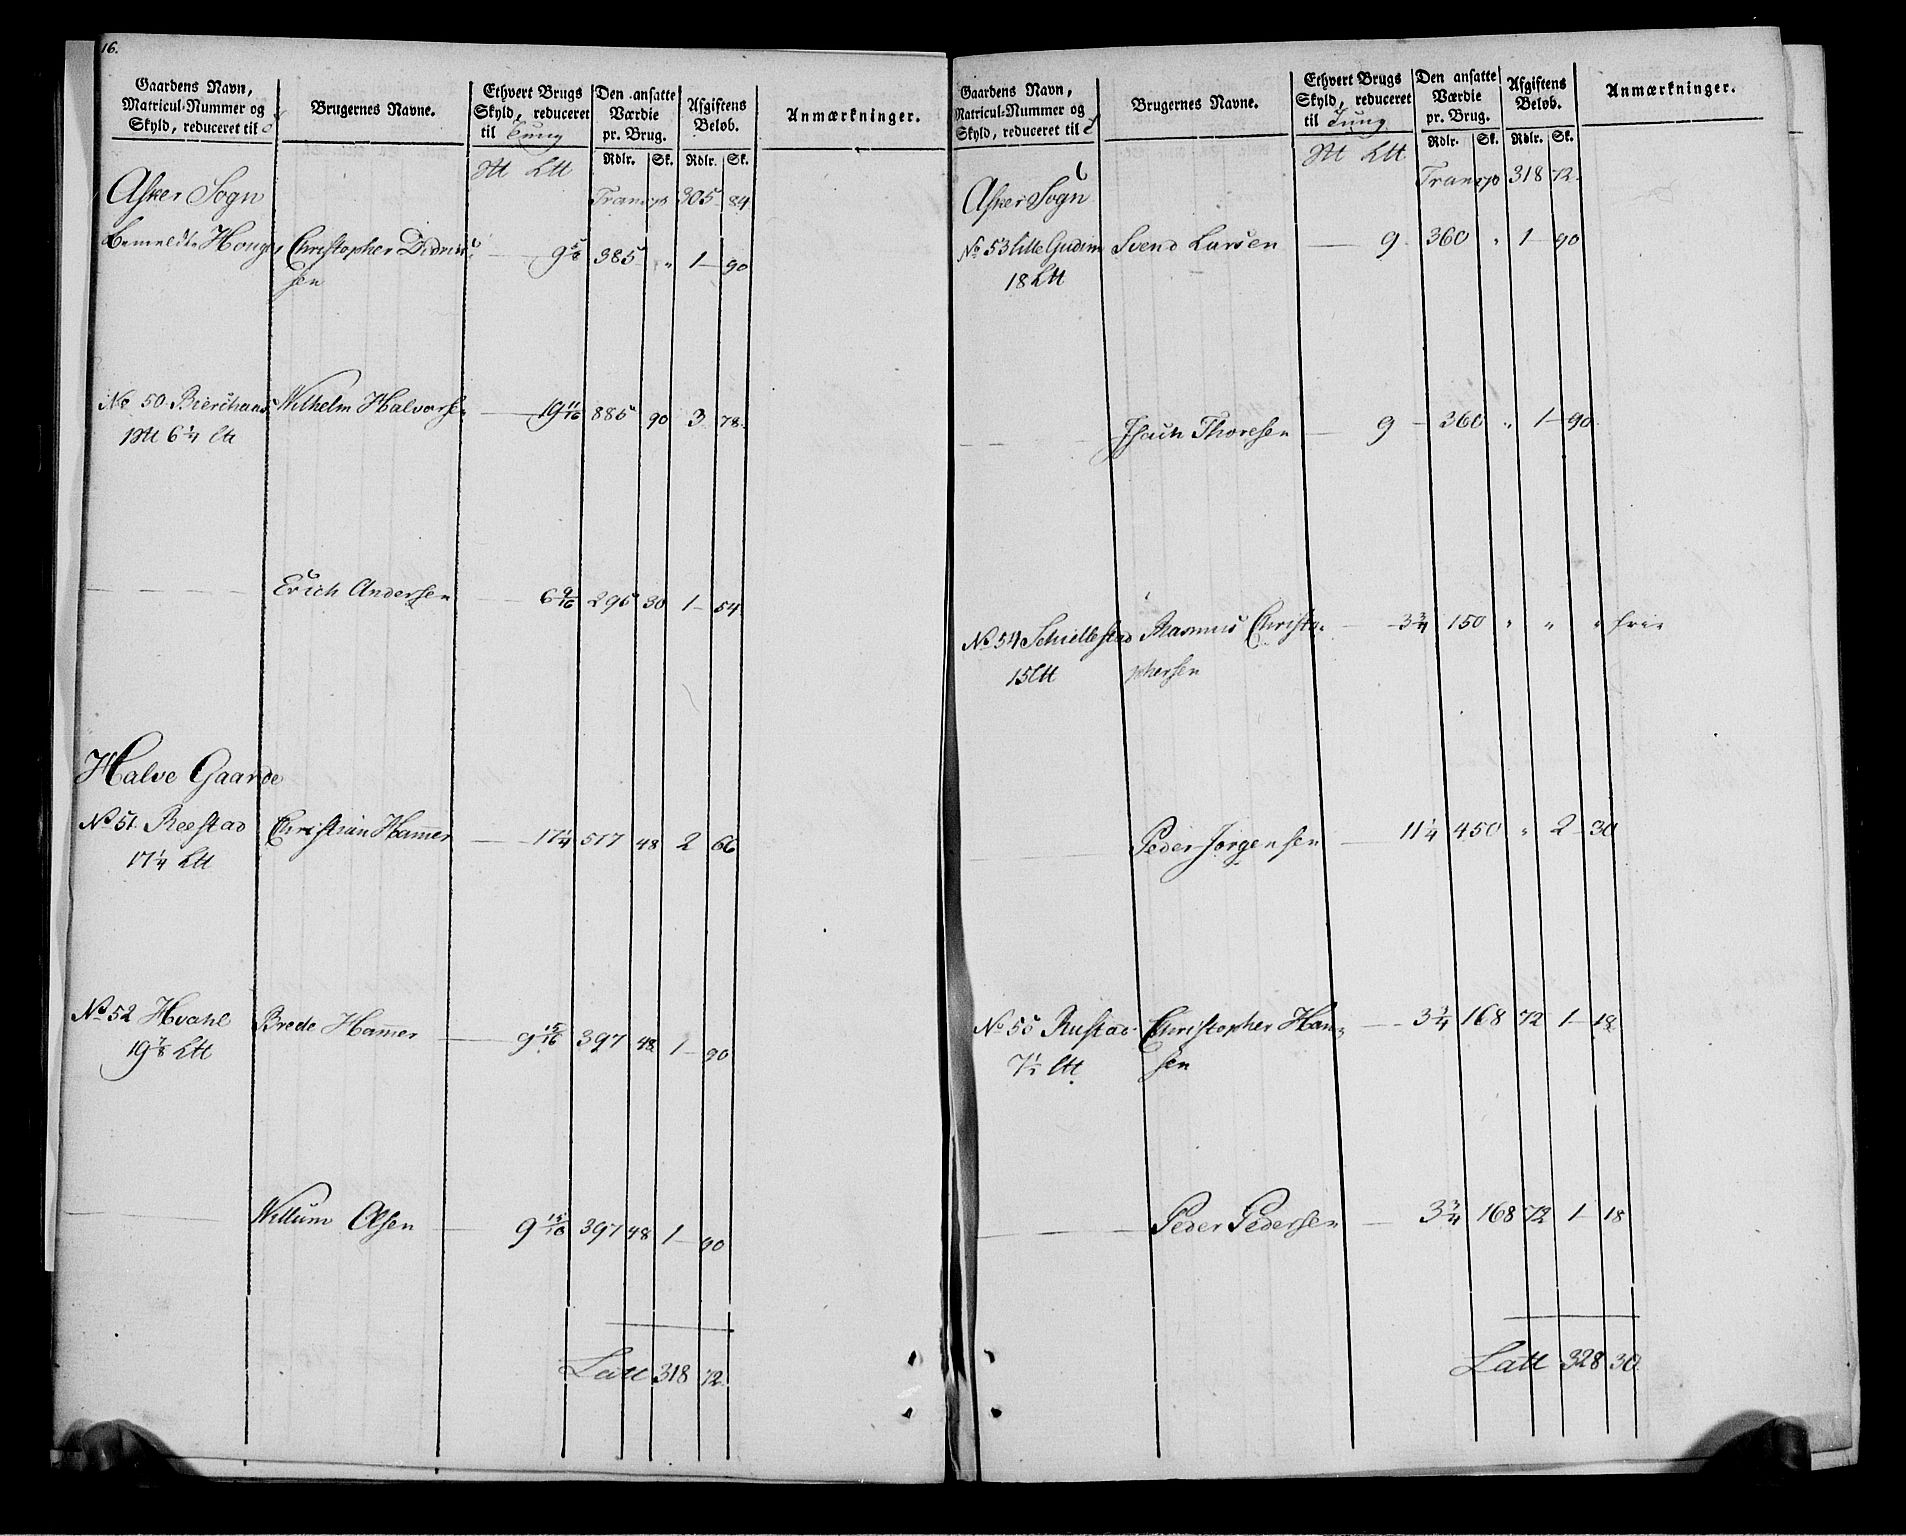 16.
Gaardens Navn,
Matricul-Nummer og
Skyld, reduceret til
Brugernes Navne.
Ethvert Brugs
Skyld, reduceret
til Tung
Den ansatte
Værdie
pr. Brug.
Afgiftens
Beløb.
Anmærkninger.
Rdlr. Sk. Rdlr. Sk.
Asker Sogn
Transp 305 84
bemeldte Christopher Didrich 9 5/8 385 " 1 90
sen
No 50 Wilhelm Halvorsen 19 11/16 885 90 3 78
6 1/4
Erich Andersen 6 9/16 295 30 1 54
Halve Gaarde
No 51 Reestad Christian Hamer 17 1/4 517 48 2 66
17 1/4 Ltt
No 52 Hvahl Brede Hamer 9 15/16 397 48 1 90
19 7/8 Ltt
Willum Olsen 9 15/16 397 48 1 90
Latt 318 72
Gaardens Navn,
Matricul-Nummer og
Skyld, reduceret til
Brugernes Navne.
Ethvert Brugs
Skyld, reduceret
til Tung
Den ansatte
Værdie
pr. Brug.
Afgiftens
Beløb.
Anmærkninger.
Rdlr. Sk. Rdlr. Sk.
Asker Sogn
Transp 318 72
No 53 lille Gudim Svend Larsen 9 360 " 1 90
18 Ltt
Isach Thoresen 9 360 " 1 90
No 54 Schiellestad Rasmus Christo- 3 3/4 150 " " " frie
15 Ltt phersen
Peder Jørgensen 11 1/4 450 " 2 30
No 55 Rustad Christopher Han- 3 3/4 168 72 1 18
7 1/2 Ltt sen
Peder Pedersen 3 3/4 168 72 1 18
Latt 328 30